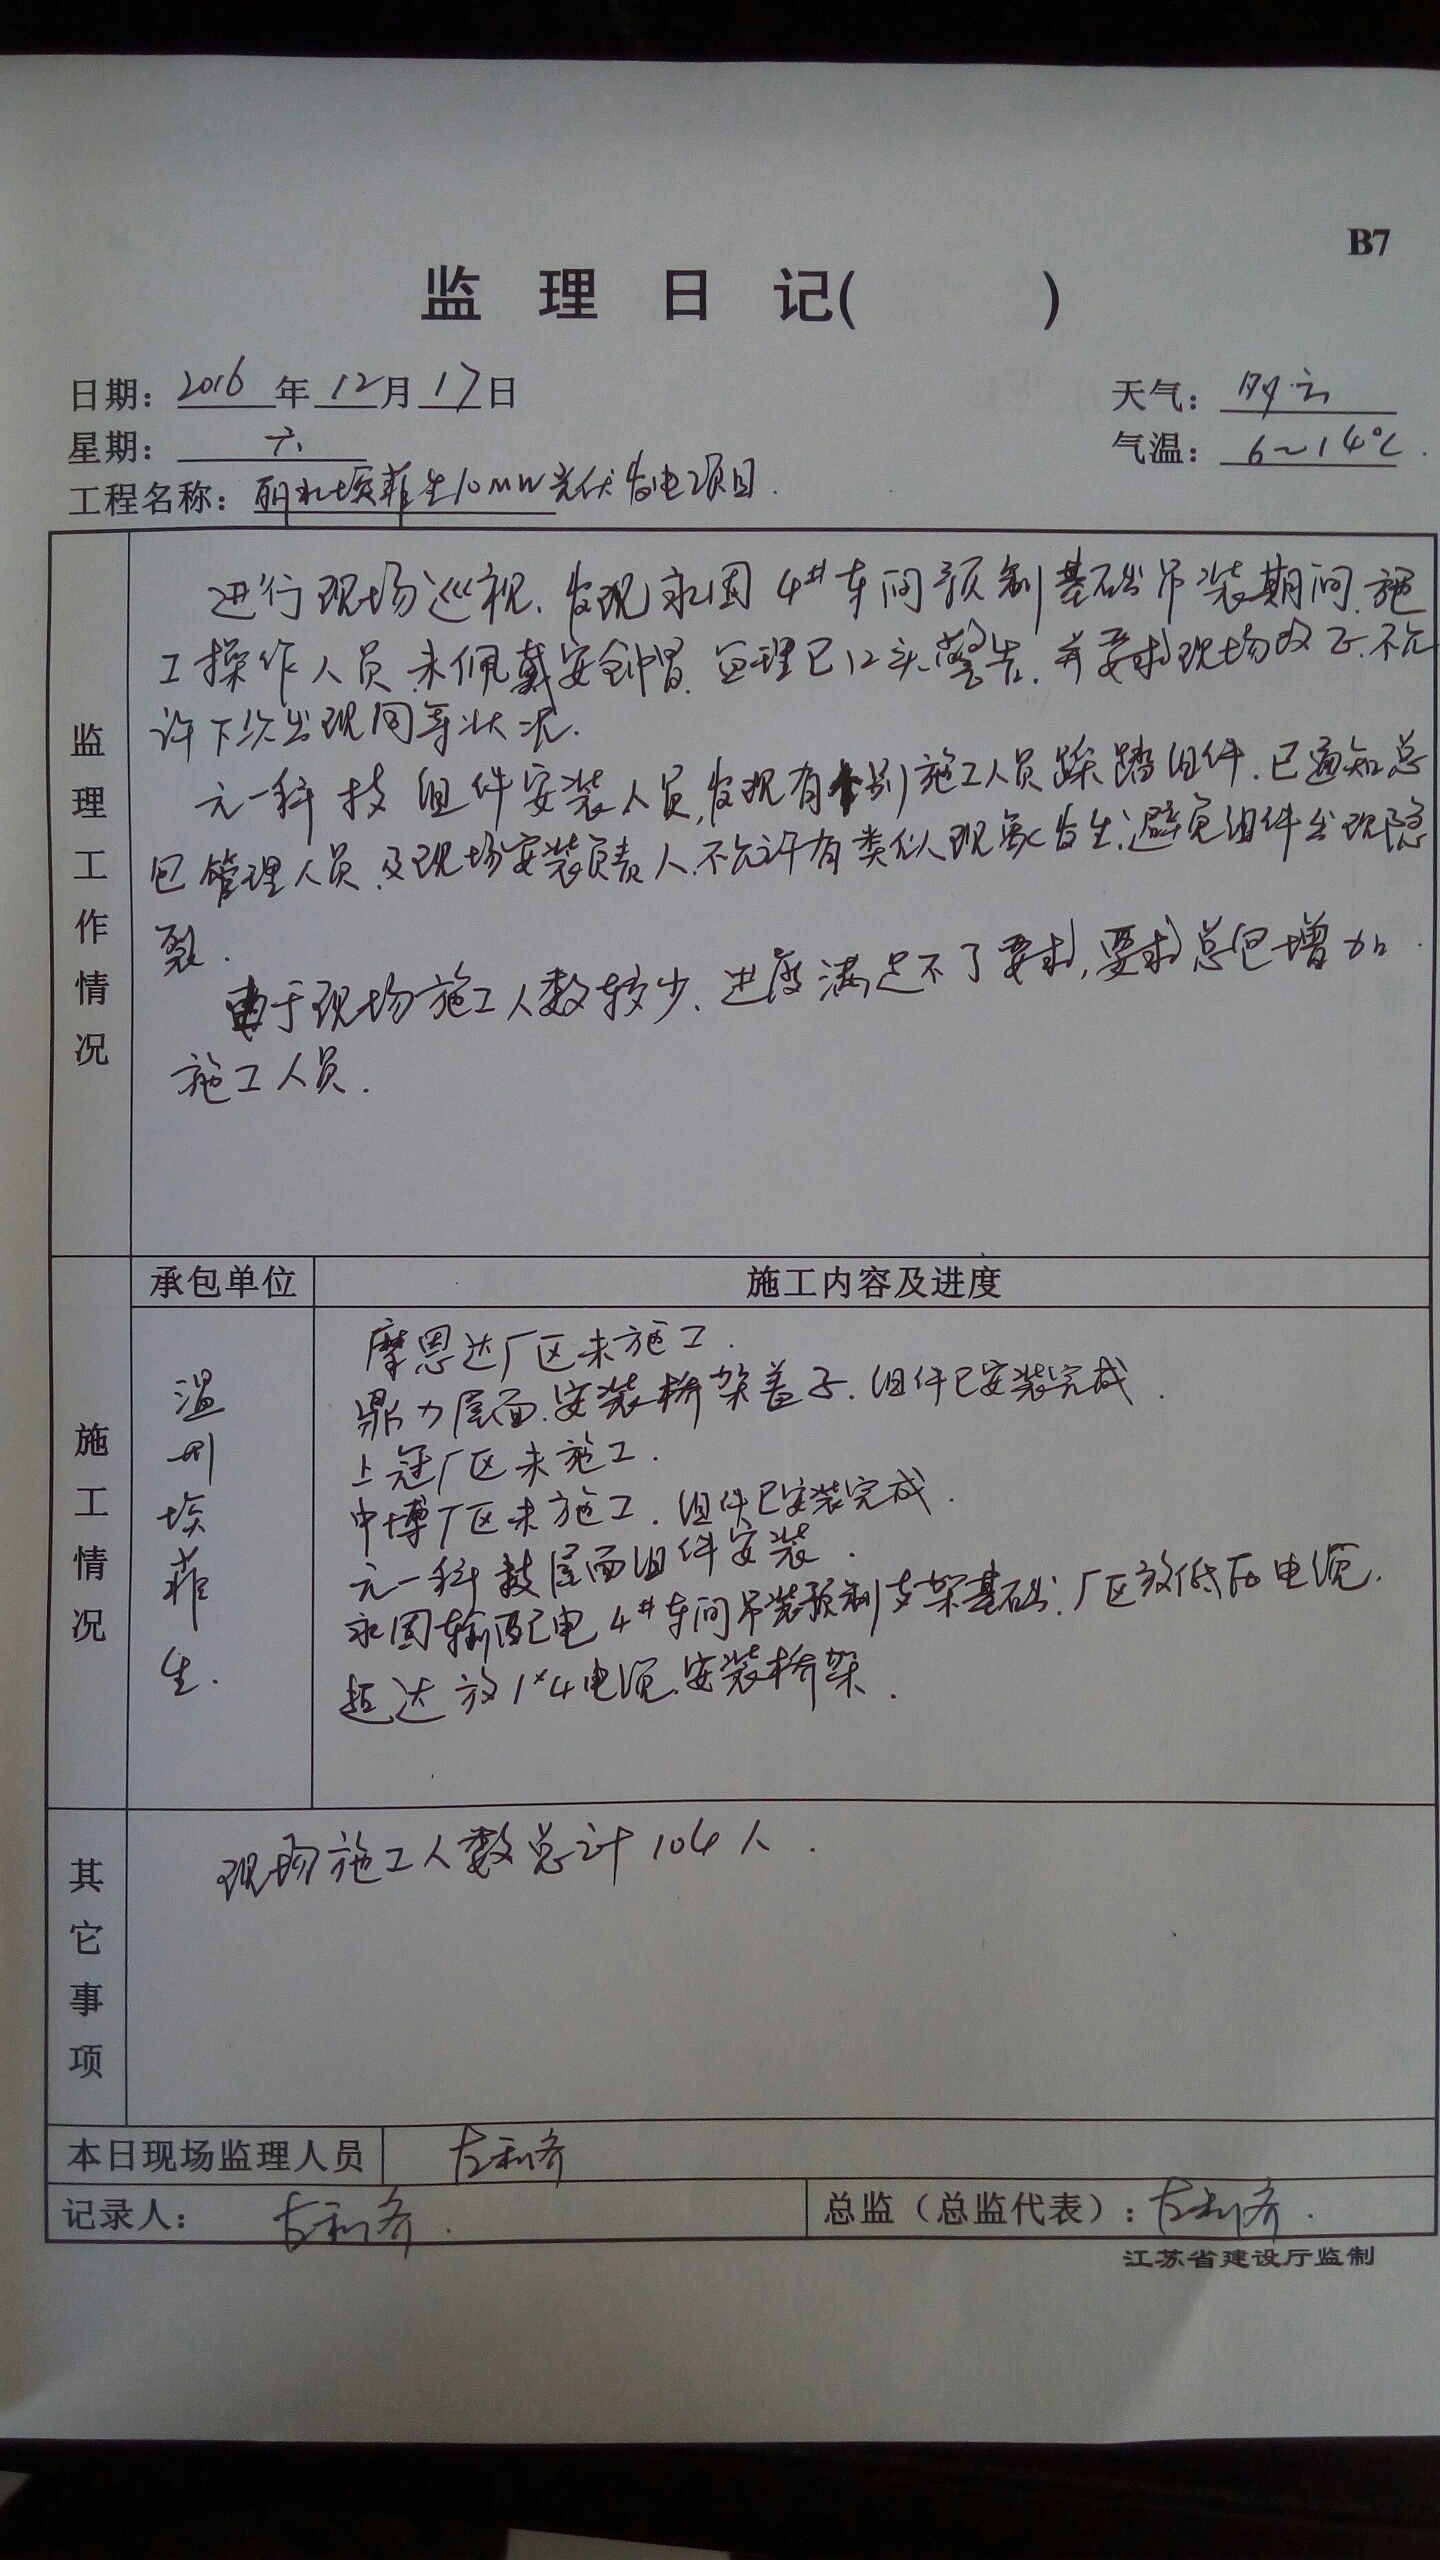 B7
监理日记(　　)
日期：2016年12月17日
天气：阴.云
星期：六.
气温：6～14℃.
工程名称：丽水埃菲生10MW光伏发电项目.
监理工作情况
进行现场巡视、发现永固4#车间预制基础吊装期间.施
工操作人员未佩戴安全帽.监理已口头警告.并要求现场改正.不允
许下次出现同等状况.
元一科技组件安装人员,发现有个别施工人员踩踏组件.已通知总
包管理人员及现场安装负责人.不允许有类似现象发生.避免组件出现隐
裂.
由于现场施工人数较少、进度满足不了要求,要求总包增加
施工人员.
施工情况
承包单位
施工内容及进度
温州埃菲生.
摩恩达厂区未施工.
鼎力屋面.安装桥架盖子.组件已安装完成.
上冠厂区未施工.
中博厂区未施工.组件已安装完成.
元一科技屋面组件安装.
永固输配电4#车间吊装预制支架基础.厂区放低压电缆.
超达放1×4电缆.安装桥架.
其它事项
现场施工人数总计104人.
本日现场监理人员
左利齐
记录人：左利齐.
总监（总监代表）：左利齐.
江苏省建设厅监制